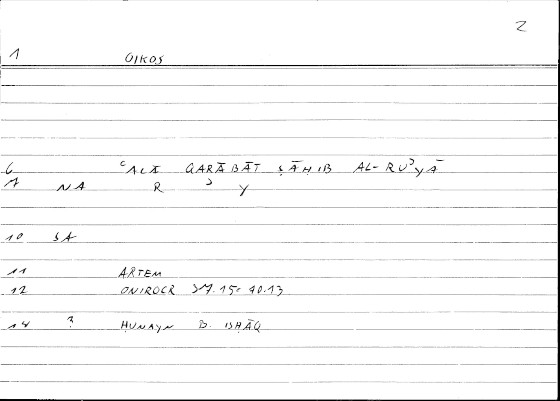 2
1 OIKOS
6 ʿALĀ QARĀBĀT ṢĀḤIB AL-RUʾYĀ
7 NA R ʾ Y
10 SA
11 ARTEM
12 ONIROCR 37.15: 40.13
14 ? HUNAYN B. ISHĀQ